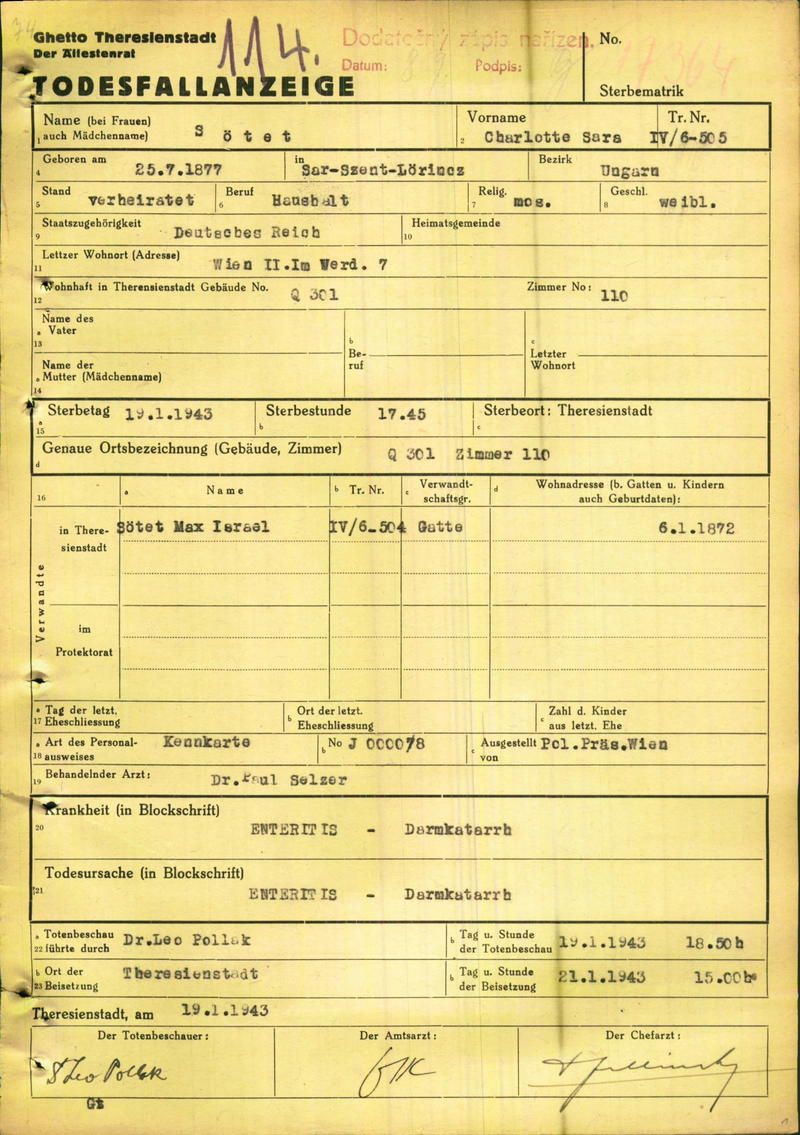 Ghetto Theresienstadt
Der Ältestenrat
114.
Dodatečný zápis nařízen.
Datum:
Podpis:
No.
17364
TODESFALLANZEIGE
Sterbematrik
Name (bei Frauen)
1 auch Mädchenname) Sötet
Vorname
2 Charlotte Sara
Tr. Nr.
IV/6-505
Geboren am
4 25.7.1877
in
Sar-Szent-Lörincz
Bezirk
Ungarn
Stand
5 verheiratet
Beruf
6 Haushalt
Relig.
7 mos.
Geschl.
8 weibl.
Staatszugehörigkeit
9 Deutsches Reich
Heimatsgemeinde
10
Lettzer Wohnort (Adresse)
11 Wien II.Im Werd. 7
Wohnhaft in Therensienstadt Gebäude No.
12 Q 301
Zimmer No: 110
Name des
a Vater
13
b
Be-
ruf
c
Letzter
Wohnort
Name der
a Mutter (Mädchenname)
14
Sterbetag 19.1.1943
a
15
Sterbestunde 17.45
b
Sterbeort: Theresienstadt
c
Genaue Ortsbezeichnung (Gebäude, Zimmer) Q 301 Zimmer 110
d
16
a Name
b Tr. Nr.
c Verwandt-
schaftsgr.
d Wohnadresse (b. Gatten u. Kindern
auch Geburtdaten):
Verwandte
in There-
sienstadt
Sötet Max Israel IV/6-504 Gatte 6.1.1872
im
Protektorat
a Tag der letzt.
17 Eheschliessung
b Ort der letzt.
Eheschliessung
c Zahl d. Kinder
aus letzt. Ehe
a Art des Personal-
18 ausweises Kennkarte
b No J 000078
c Ausgestellt
von Pol.Präs.Wien
Behandelnder Arzt:
19 Dr.Paul Selzer
Krankheit (in Blockschrift)
20 ENTERITIS - Darmkatarrh
Todesursache (in Blockschrift)
21 ENTERITIS - Darmkatarrh
a Totenbeschau
22 führte durch Dr.Leo Pollak
b Tag u. Stunde
der Totenbeschau 19.1.1943 18.50h
b Ort der
23 Beisetzung Theresienstadt
b Tag u. Stunde
der Beisetzung 21.1.1943 15.00h
Theresienstadt, am 19.1.1943
Der Totenbeschauer:
Der Amtsarzt:
Der Chefarzt:
Dr Leo Pollak
Gt